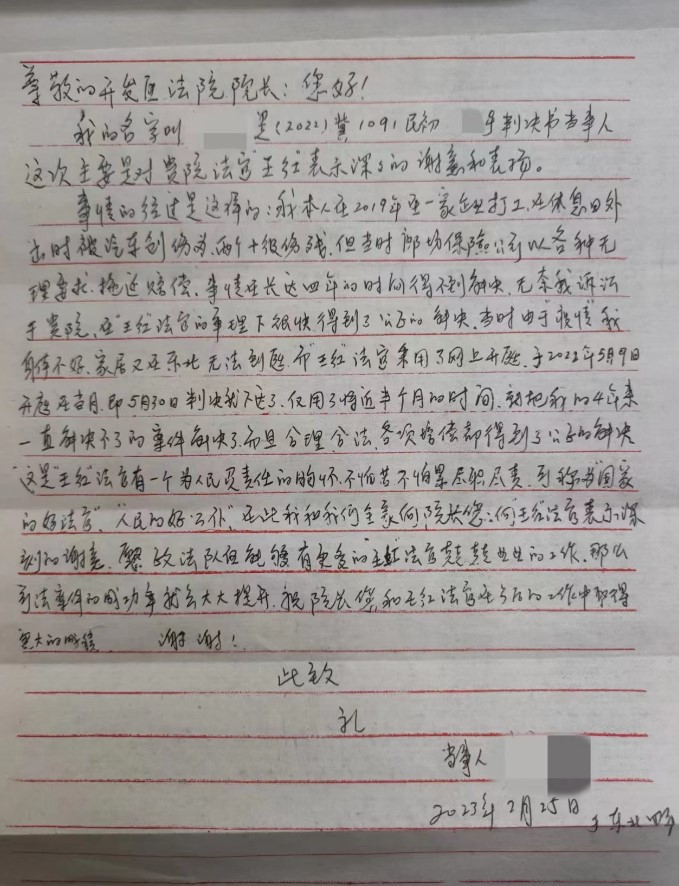 尊敬的开发区法院院长：您好！
我的名字叫 是(2022)冀1091民初 号判决书当事人
这次主要是对贵院法官"王红"表示深深的谢意和表扬。
事情的经过是这样的：我本人在2019年在一家企业打工，在休息日外
出时被汽车创伤为两个十级伤残，但当时廊坊保险公司以各种无
理要求，拖延赔偿，事情在长达四年的时间得不到解决，无奈我诉讼
于贵院，在"王红"法官的审理下很快得到了公正的解决，当时由于"疫情"我
身体不好，家居又在东北无法到庭，而"王红"法官采用了网上开庭，于2022年5月9日
开庭在当月，即5月30日判决就下达了，仅用了将近半个月的时间，就把我的4年来
一直解决不了的事件解决了，而且合理，合法，各项赔偿都得到了公正的解决
"这是"王红"法官有一个为人民负责任的胸怀，不怕苦不怕累尽职尽责，到称为"国家
的好法官"，"人民的好公仆"，在此我和我们全家向院长您，向王红法官表示深
刻的谢意，愿政法队伍能够有更多的"王红"法官兢兢业业的工作，那么
司法案件的成功率就会大大提升，祝院长您和王红法官在今后的工作中取得
更大的成绩， 谢谢！
此致
礼
当事人
2023年2月25日 于东北